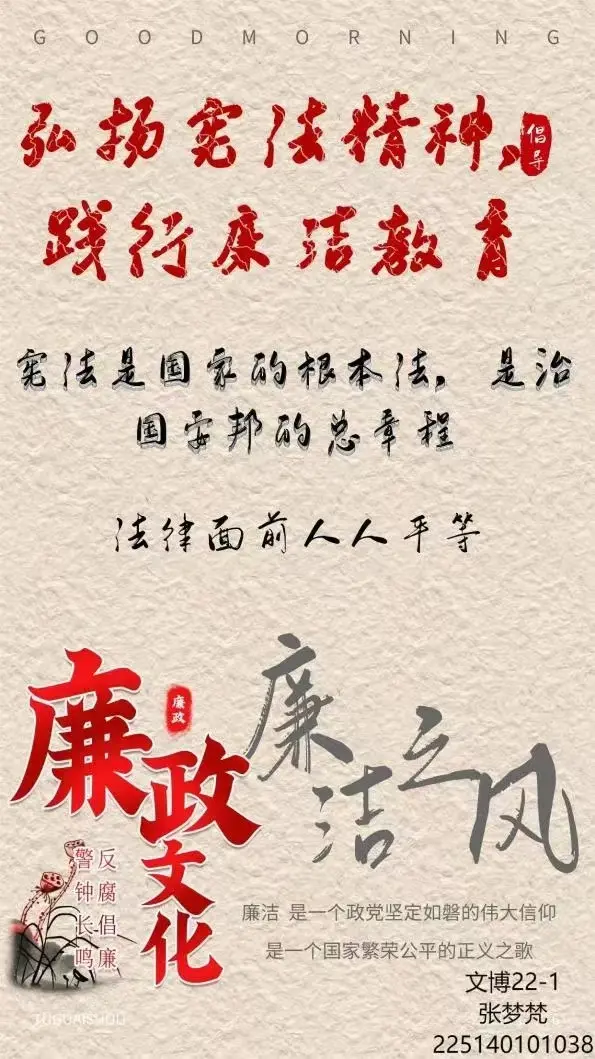 GOODMORNING
弘扬宪法精神，
倡导
践行廉洁教育
宪法是国家的根本法，是治
国安邦的总章程
法律面前人人平等
廉政文化
廉政
反腐倡廉
警钟长鸣
廉洁之风
廉洁 是一个政党坚定如磐的伟大信仰
是一个国家繁荣公平的正义之歌
文博22-1
张梦梵
225140101038